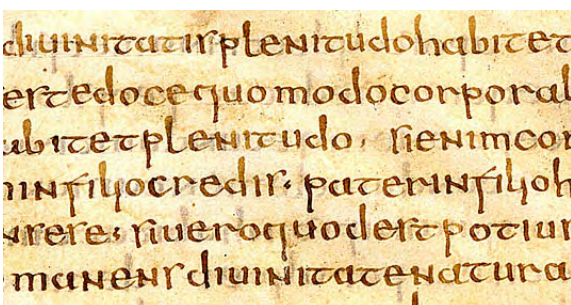 diuinitatisplenitudohabitet
ertedocequomodocorporal
abitetplenitudo, sienimcor
ninfiliocredis. paterinfilioh
inrese; siueroquodestpotius
manensdiuinitatenatura